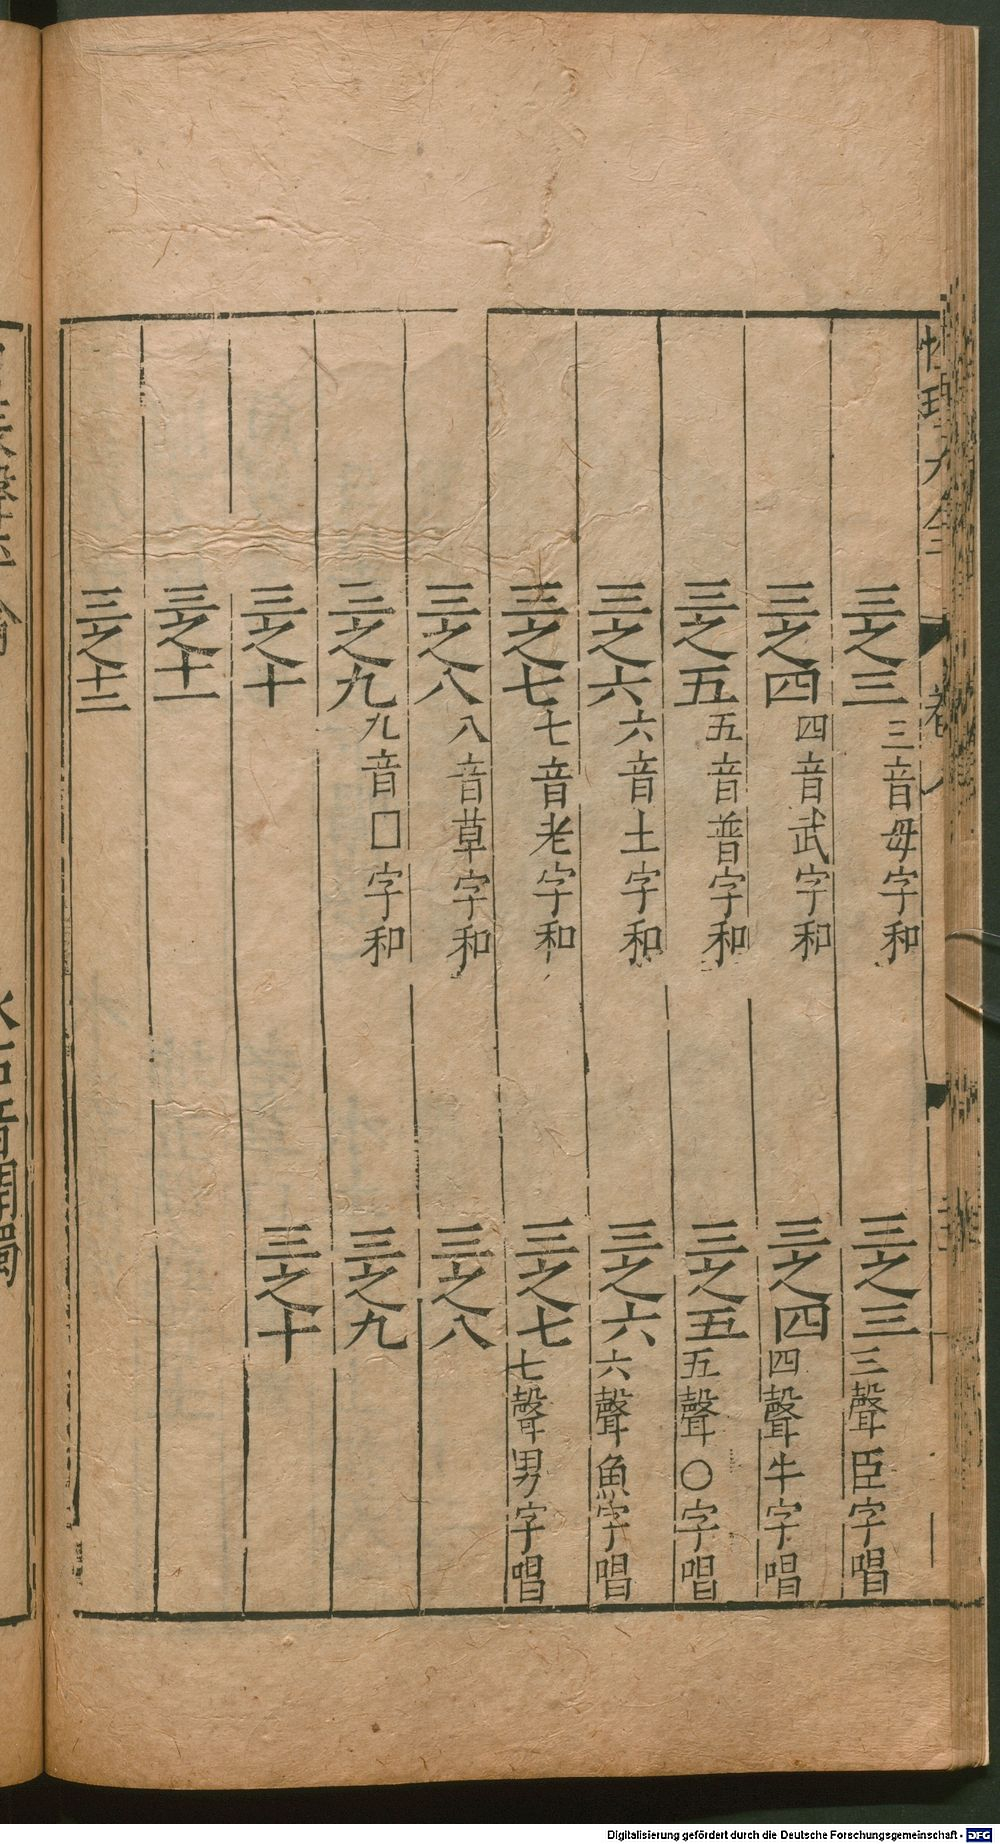 性理大全 卷八
三之三三音母字和 三之三三聲臣字唱
三之四四音武字和 三之四四聲牛字唱
三之五五音普字和 三之五五聲○字唱
三之六六音土字和 三之六六聲魚字唱
三之七七音老字和 三之七七聲男字唱
三之八八音草字和 三之八
三之九九音□字和 三之九
三之十 三之十
三之十一
三之十二
水石音開濁
Digitalisierung gefördert durch die Deutsche Forschungsgemeinschaft - DFG